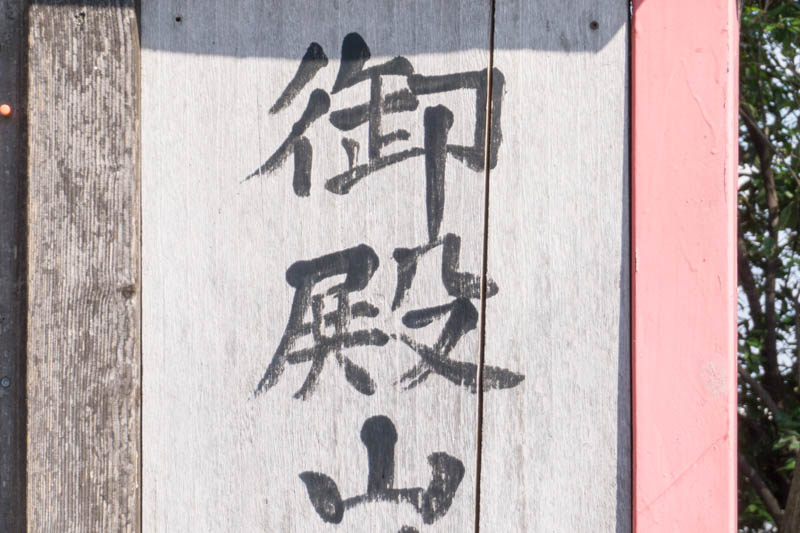 御殿山